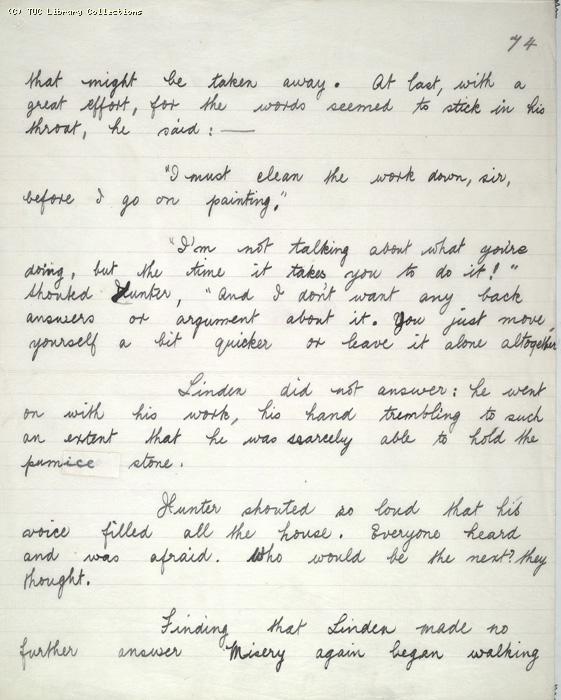 (C) TUC Library Collections
74
that might be taken away. At last, with a
great effort, for the words seemed to stick in his
throat, he said: —
"I must clean the work down, sir,
before I go on painting."
"I'm not talking about what you're
doing, but the time it takes you to do it!"
shouted Hunter, "And I don't want any back
answers or argument about it. You just move
yourself a bit quicker or leave it alone altogether
Linden did not answer: he went
on with his work, his hand trembling to such
an extent that he was scarcely able to hold the
pumice stone.
Hunter shouted so loud that his
voice filled all the house. Everyone heard
and was afraid. Who would be the next? they
thought.
Finding that Linden made no
further answer Misery again began walking